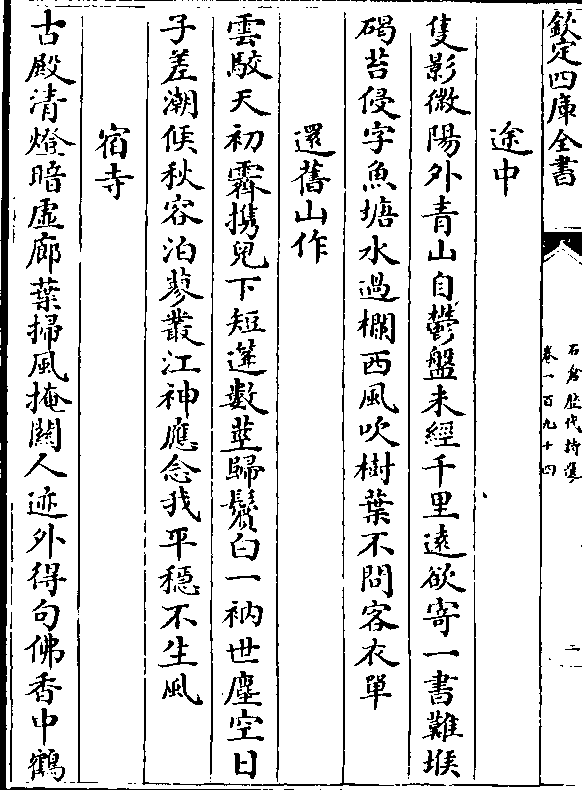 欽定四庫全書
石倉歴代詩選
卷一百九十四
二
途中
隻影微陽外青山自鬱盤未經千里遠欲寄一書難堠
碣苔侵字魚塘水過欄西風吹樹葉不問客衣單
還舊山作
雲駮天初霽携兒下短蓬數莖歸鬢白一衲世塵空日
子差潮候秋容泊蓼叢江神應念我平穩不生風
宿寺
古殿清燈暗虚廊葉掃風掩關人迹外得句佛香中鶴